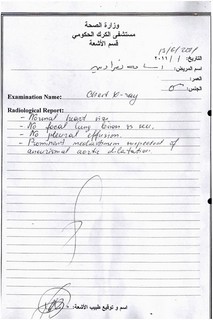 وزارة الصحة
مستشفى الكرك الحكومي
قسم الأشعة
التاريخ: / / ٢٠١١
اسم المريض:
العمر:
الجنس:
Examination Name: Chest X-ray
Radiological Report:
- Normal heart size.
- No focal lung lesion is seen.
- No pleural effusion.
- Prominent mediastinum suspected of
aneurysmal aorta dilatation.
اسم و توقيع طبيب الأشعة